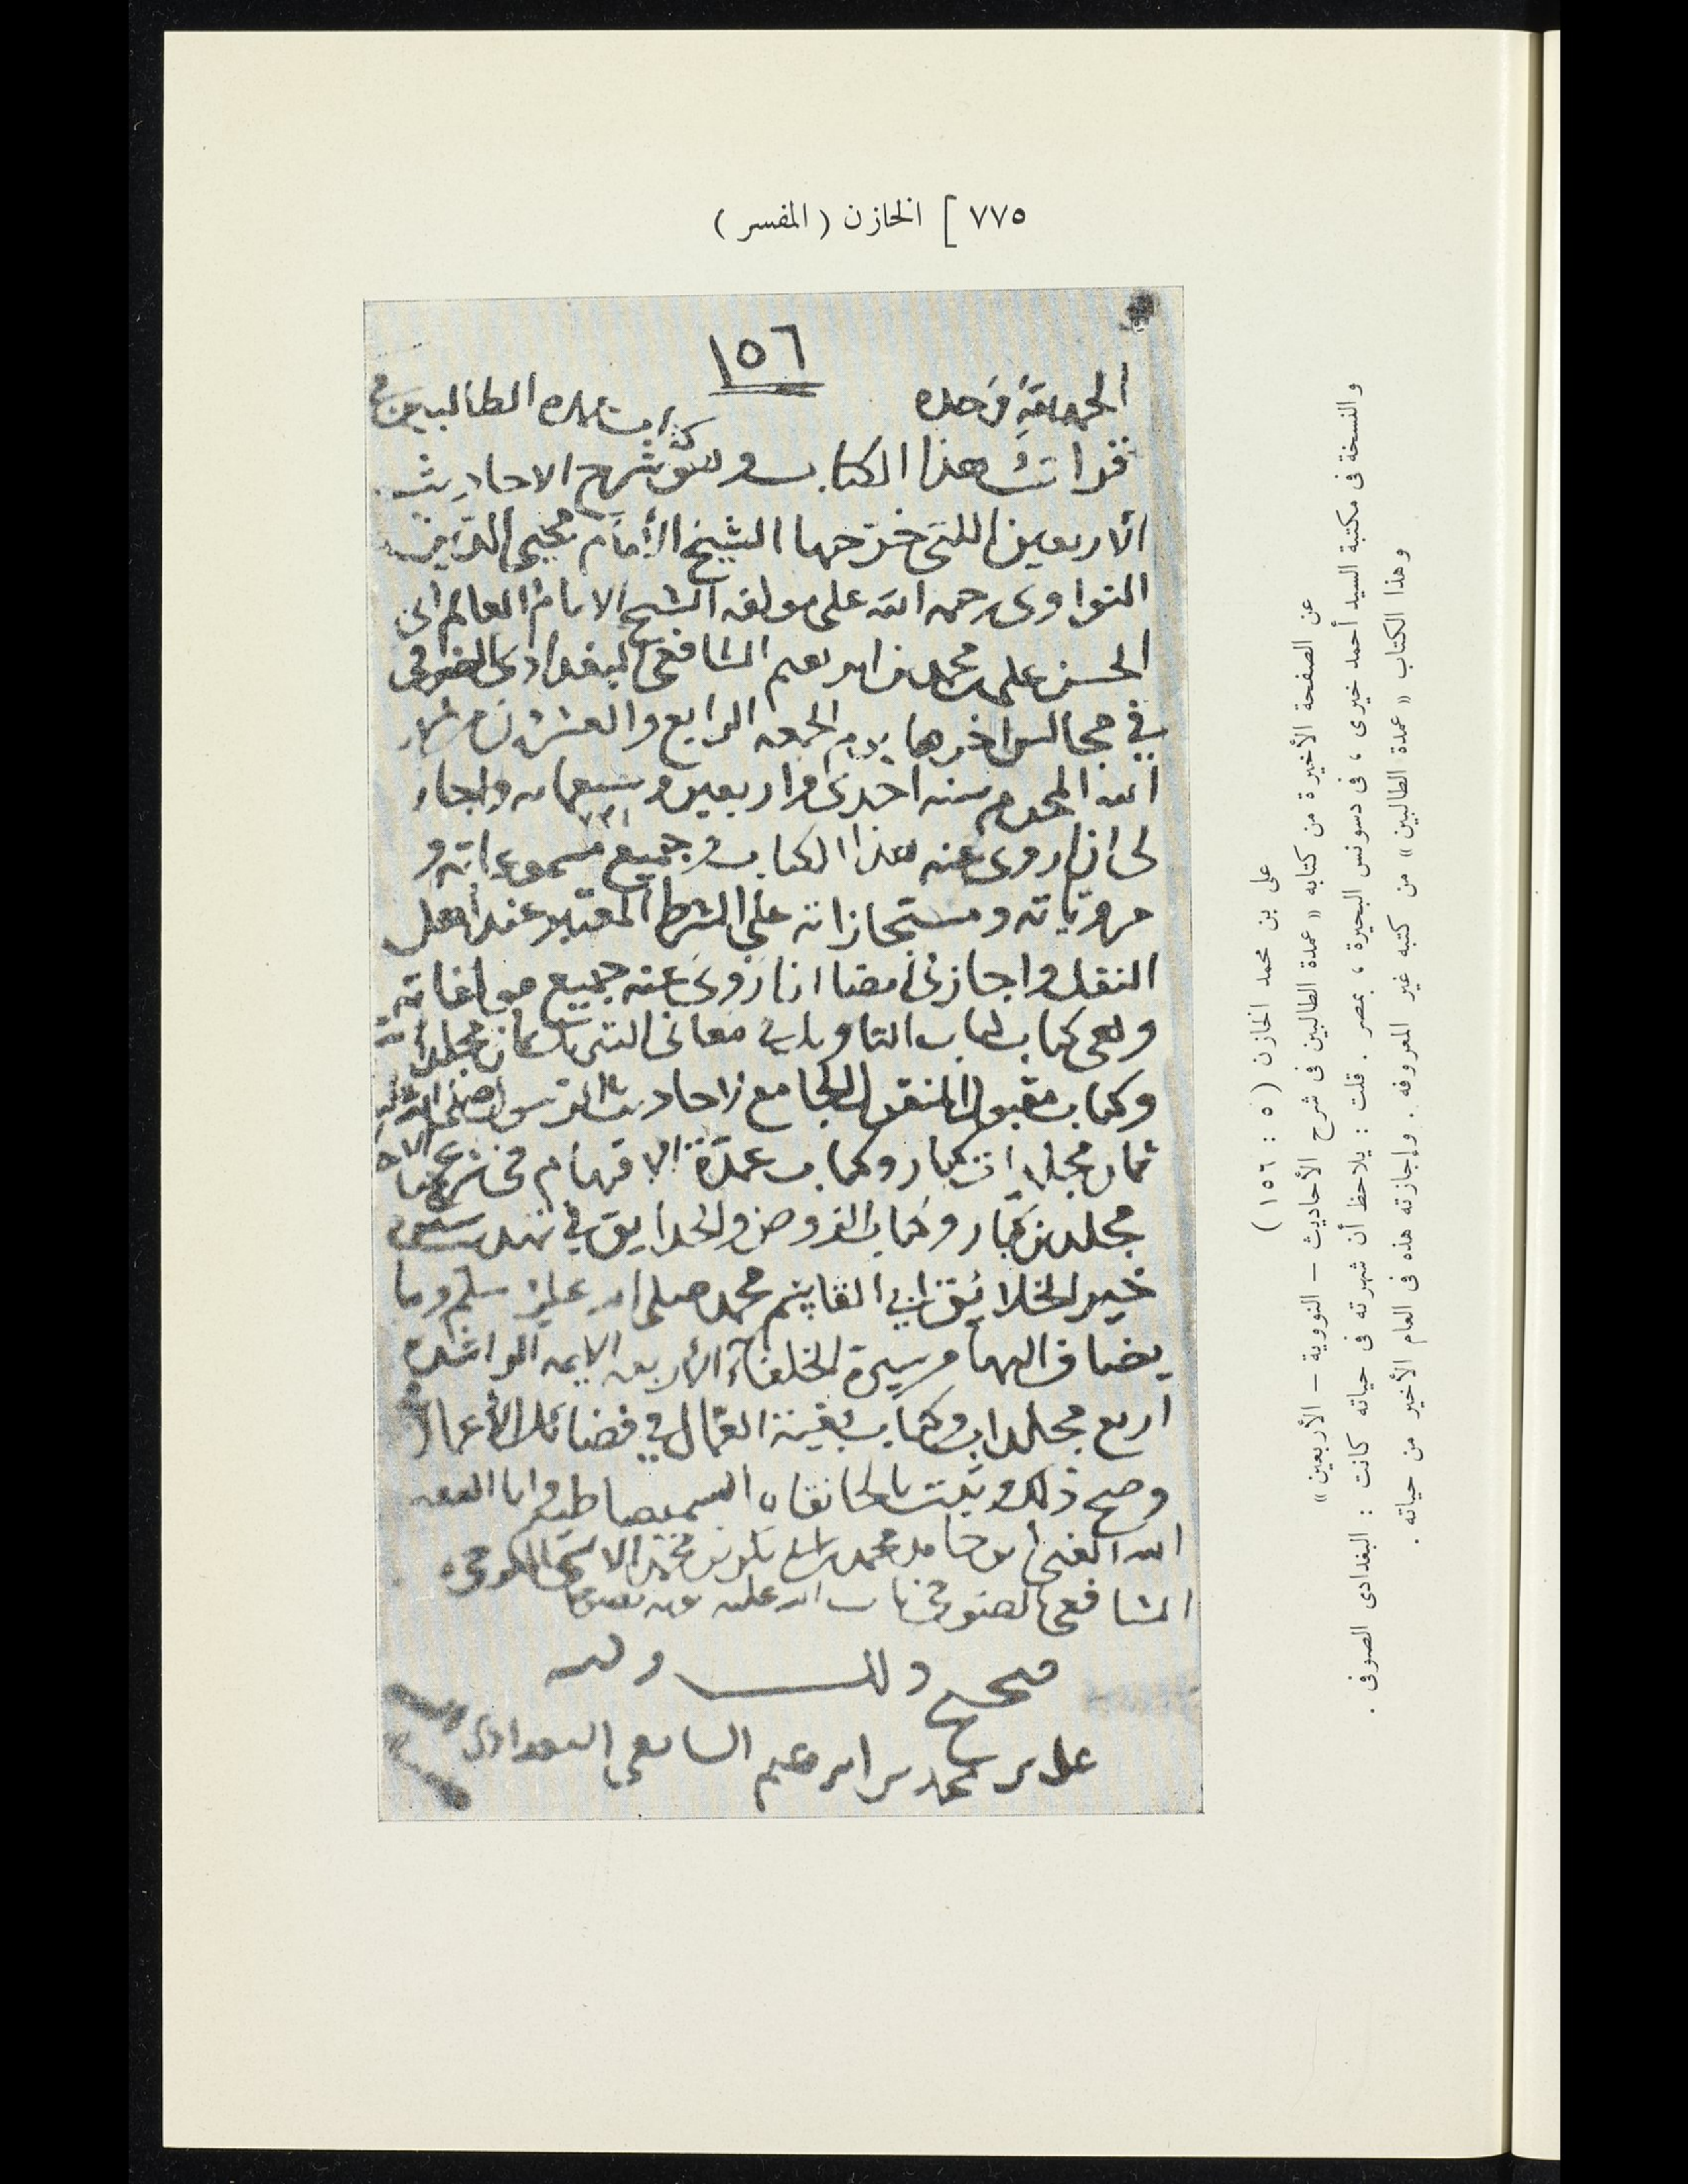 ٧٧٥ ] الخازن ( المفسر )
١٥٦
الحمد لله وحده
كتاب عمدة الطالبين في
قرات هذا الكتاب وهو شرح الاحاديث
الاربعين اللتي خرجها الشيخ الأمام محيي الدين
النواوي رحمه الله على مولفه الشيخ الامام العالم ابي
الحسن علي بن محمد بن ابرهيم الشافعي البغدادي الصوفي
في مجالس اخرها يوم الجمعه الرابع والعشرين من شهر
الله المحرم سنه احدى واربعين وسبعمائه واجاز
٧٤١
لي ان اروي عنه هذا الكتاب وجميع مسموعاته و
مروياته ومستجازاته على الشرط المعتبر عند أهل
النقل واجازني ايضا ان اروي عنه جميع مولفاته
وهي كتاب لباب التاويل في معاني التنزيل ثمان مجلدات
وكتاب مقبول المنقول الجامع لاحاديث الرسول صلى الله عليه
ثمان مجلدات كبار وكتاب عمدة الافهام في شرح
مجلدين كبار وكتاب الروض والحدايق في تهذيب سيرة
خير الخلائق ابي القاسم محمد صلى الله عليه وسلم وما
يضاف اليها من سيرة الخلفاء الأربعه الايمه الراشدة
اربع مجلدات وكتاب بغية العمال في فضائل الأعمال
وصح ذلك وثبت بالخانقاه السميصاطيه وانا الفقير
الله الغني ابو حامد محمد بن
الشافعي الصوفي تاب الله عليه
صحيح ذلك وكتبه
علي بن محمد بن ابرهيم الشافعي البغدادي
على بن محمد الخازن ( ٥ : ١٥٦ )
عن الصفحة الأخيرة من كتابه « عمدة الطالبين فى شرح الأحاديث – النووية – الأربعين »
والنسخة فى مكتبة السيد أحمد خيرى ، فى دسونس البحيرة ، بمصر . قلت : يلاحظ أن شهرته فى حياته كانت : البغدادى الصوفى .
وهذا الكتاب « عمدة الطالبين » من كتبه غير المعروفه . وإجازته هذه فى العام الأخير من حياته .